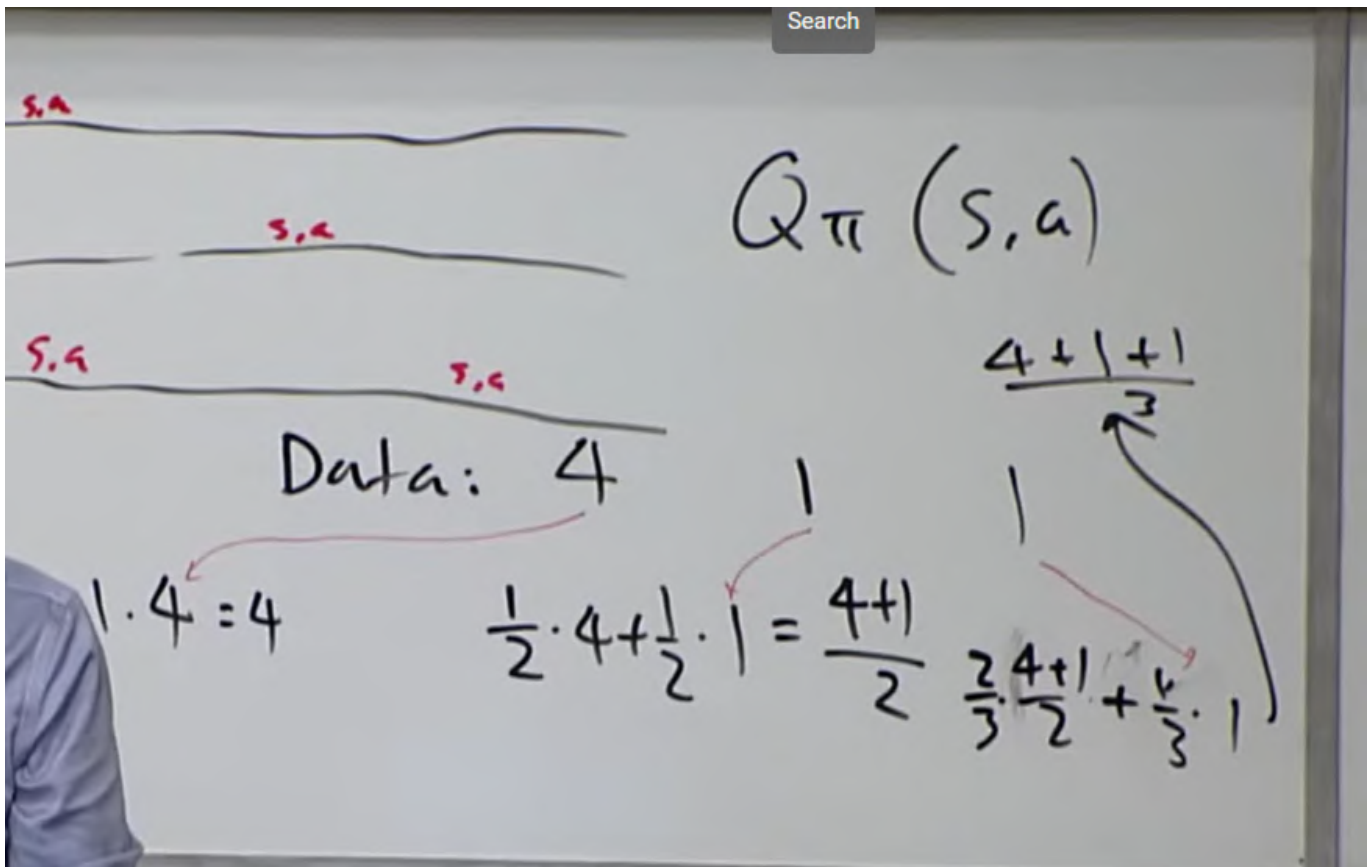 Search
s,a
s,a
Qπ (s,a)
s,a
s,a
4+1+1
3
Data: 4 1 1
1·4=4
1/2·4+1/2·1=4+1/2
2/3·4+1/2+1/3·1